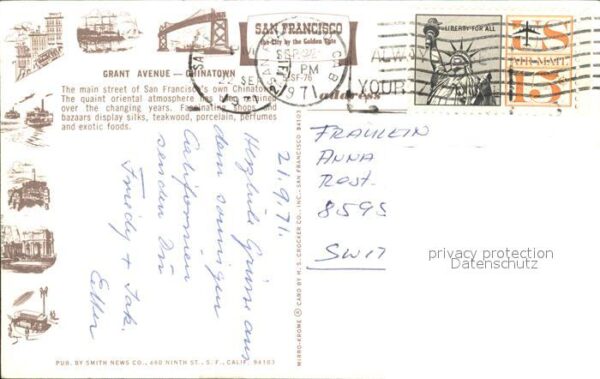 SAN FRANCISCO
The City by the Golden Gate
GRANT AVENUE — CHINATOWN
The main street of San Francisco's own Chinatown.
The quaint oriental atmosphere has been retained
over the changing years. Fascinating shops and
bazaars display silks, teakwood, porcelain, perfumes
and exotic foods.
21.9.71.
Herzliche Grüsse aus
dem sonnigen
Californien
senden Dir
Friedy + Jak.
PUB. BY SMITH NEWS CO., 460 NINTH ST., S. F., CALIF. 94103
MIRRO-KROME ® CARD BY H. S. CROCKER CO., INC., SAN FRANCISCO, CA. 94103
address
SEP 22
PM
1971
ALWAYS
YOUR
LIBERTY FOR ALL
US
AIR MAIL
15¢
FRÄULEIN
ANNA
Rost.
8595
privacy protection
Datenschutz